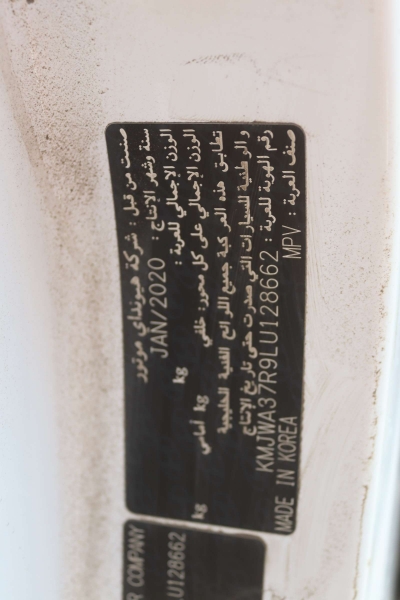 صنعت من قبل : شركة هيونداي موتور
سنة وشهر الإنتاج : JAN/2020
الوزن الإجمالي للعربة : kg
الوزن الإجمالي على كل محور: خلفي kg أمامي kg
تطابق هذه المركبة جميع اللوائح الفنية الخليجية
والوطنية للسيارات التي صدرت حتى تاريخ الإنتاج
رقم الهوية للعربة : KMJWA37R9LU128662
صنف العربة : MPV
MADE IN KOREA
R COMPANY
LU128662